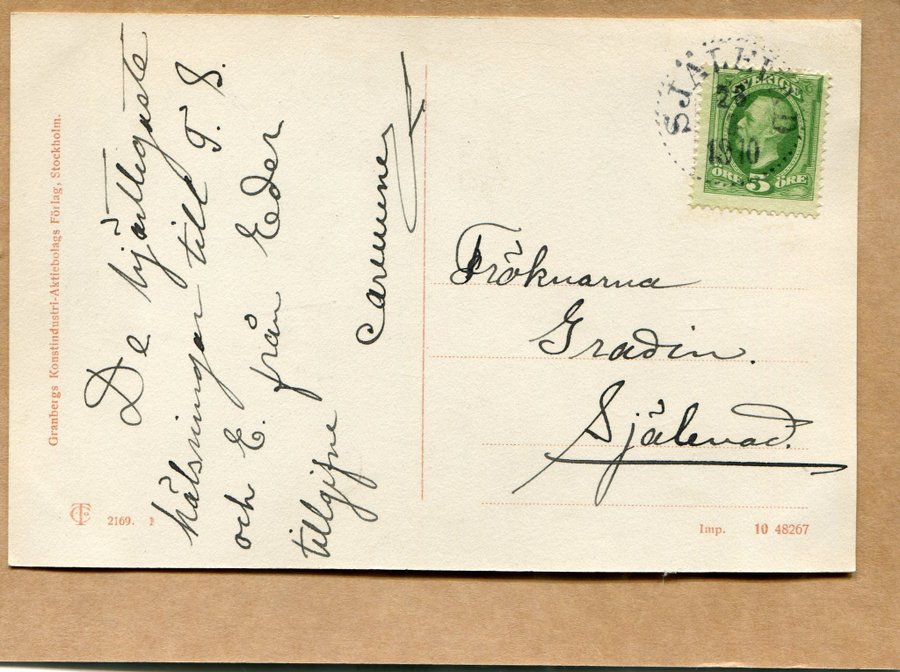 Granbergs Konstindustri-Aktiebolags Förlag, Stockholm.
2169.
De hjärtligaste
hälsningar till T. S.
och E. från Eder
tillgifne
SJÄLEVAD
23
1910
SVERIGE
ÖRE 5 ÖRE
Fröknarna
Gradin.
Själevad.
Imp. 10 48267